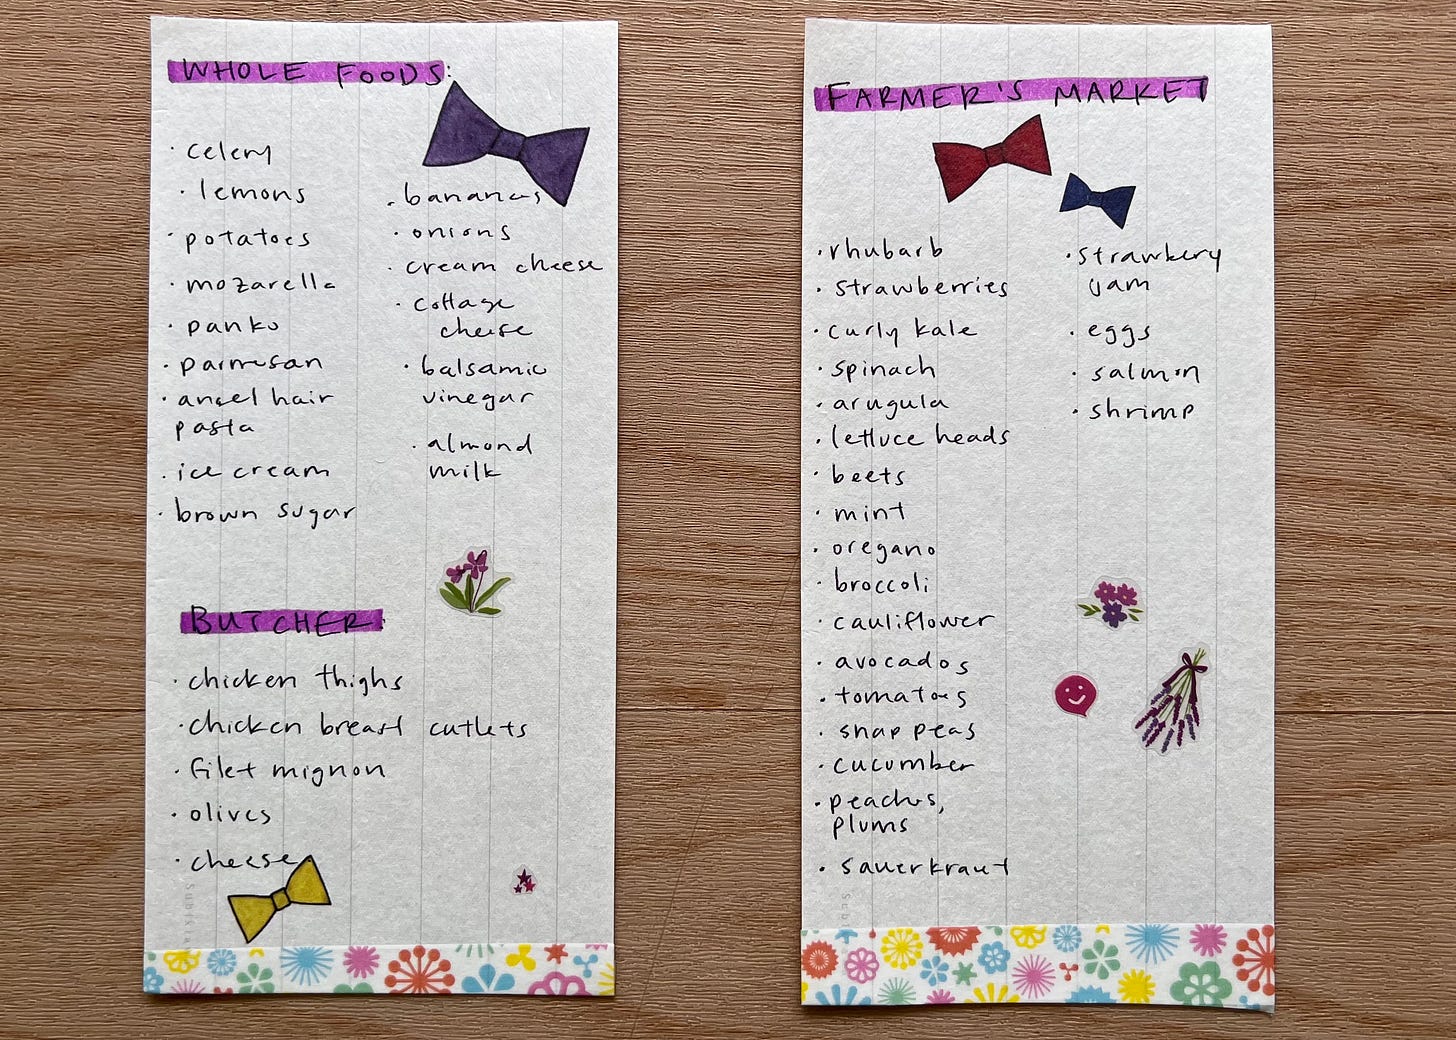 WHOLE FOODS:
· celery
· lemons
· potatoes
· mozarella
· panko
· parmesan
· angel hair
pasta
· ice cream
· brown sugar
· bananas
· onions
· cream cheese
· cottage
cheese
· balsamic
vinegar
· almond
milk
BUTCHER:
· chicken thighs
· chicken breast cutlets
· filet mignon
· olives
· cheese
FARMER'S MARKET
· rhubarb
· strawberries
· curly kale
· spinach
· arugula
· lettuce heads
· beets
· mint
· oregano
· broccoli
· cauliflower
· avocados
· tomatoes
· snap peas
· cucumber
· peaches,
plums
· sauerkraut
· strawberry
jam
· eggs
· salmon
· shrimp